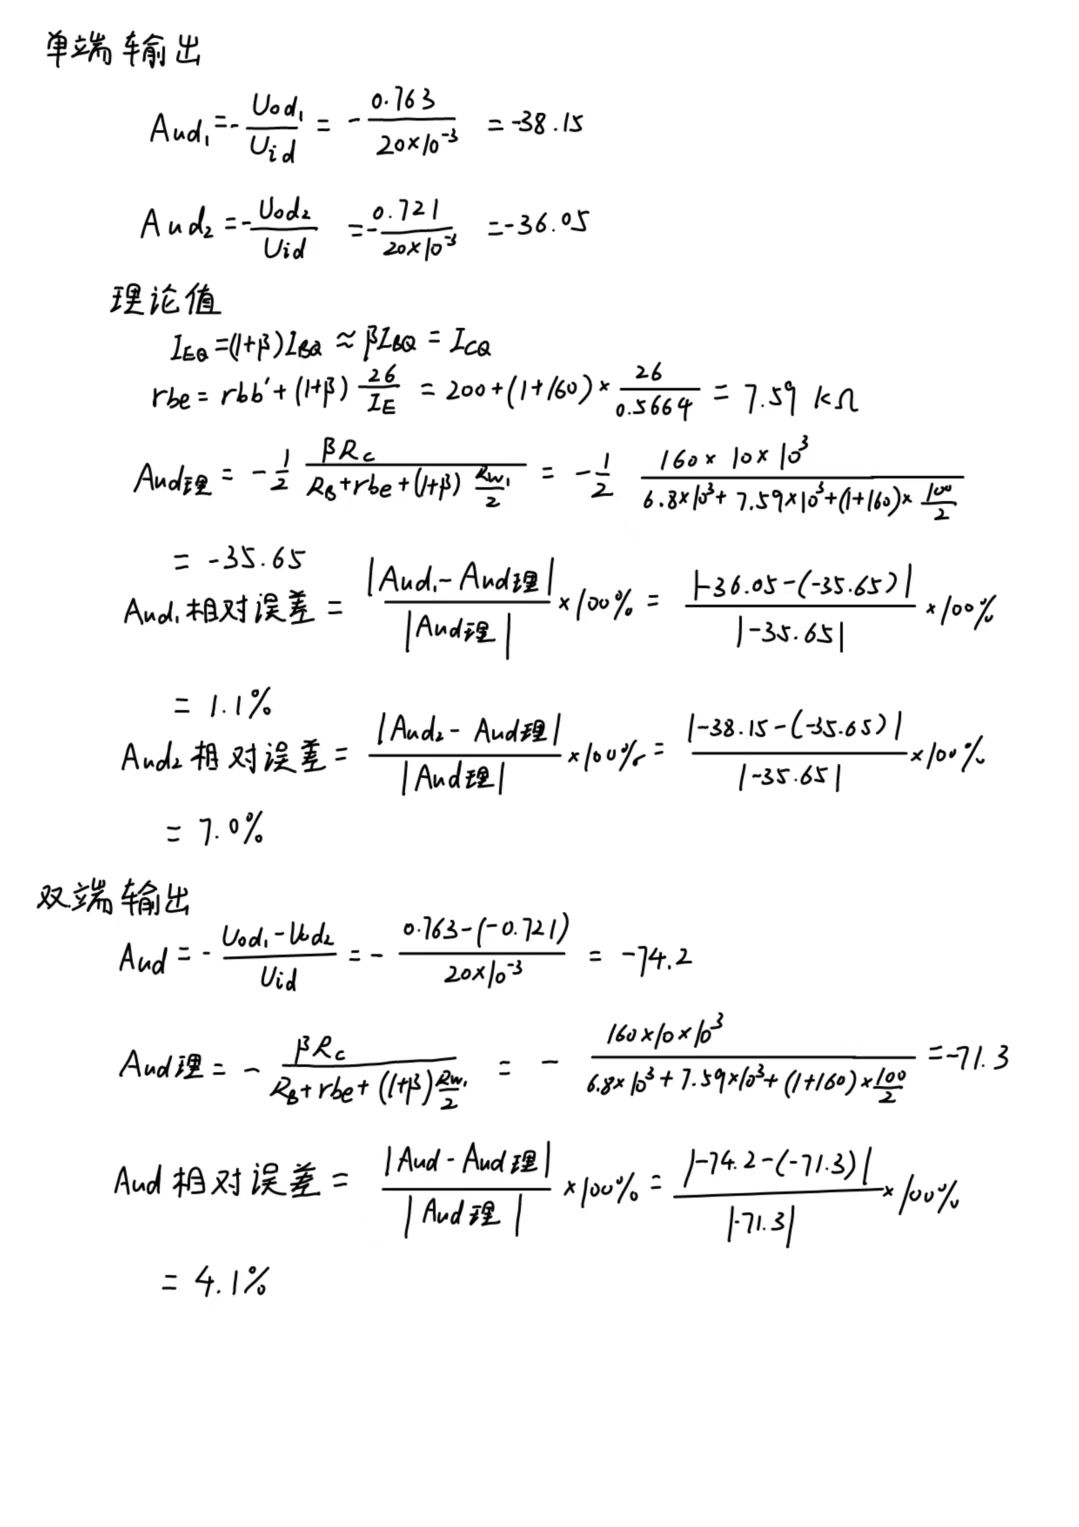 单端输出
Aud₁ = -Uod₁/Uid = -0.763/(20×10⁻³) = -38.15
Aud₂ = -Uod₂/Uid = -0.721/(20×10⁻³) = -36.05
理论值
IEQ = (1+β)IBQ ≈ βIBQ = ICQ
rbe = rbb' + (1+β) 26/IE = 200 + (1+160) × 26/0.5664 = 7.59 kΩ
Aud理 = -1/2 βRc/(RB+rbe+(1+β)Rw₁/2) = -1/2 (160×10×10³)/(6.8×10³+7.59×10³+(1+160)×100/2)
= -35.65
Aud₁相对误差 = |Aud₁-Aud理|/|Aud理| ×100% = |-36.05-(-35.65)|/|-35.65| ×100%
= 1.1%
Aud₂相对误差 = |Aud₂-Aud理|/|Aud理| ×100% = |-38.15-(-35.65)|/|-35.65| ×100%
= 7.0%
双端输出
Aud = -(Uod₁-Uod₂)/Uid = -(0.763-(-0.721))/(20×10⁻³) = -74.2
Aud理 = -βRc/(RB+rbe+(1+β)Rw₁/2) = -(160×10×10³)/(6.8×10³+7.59×10³+(1+160)×100/2) = -71.3
Aud相对误差 = |Aud-Aud理|/|Aud理| ×100% = |-74.2-(-71.3)|/|-71.3| ×100%
= 4.1%